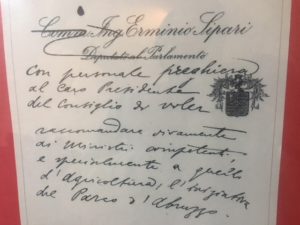 Comm. Ing. Erminio Sipari
Deputato al Parlamento
Con personale preghiera
al Caro Presidente
del Consiglio di voler
raccomandare vivamente
ai Ministri competenti,
e specialmente a quello
d'Agricoltura, l'iniziativa
del Parco d'Abruzzo.